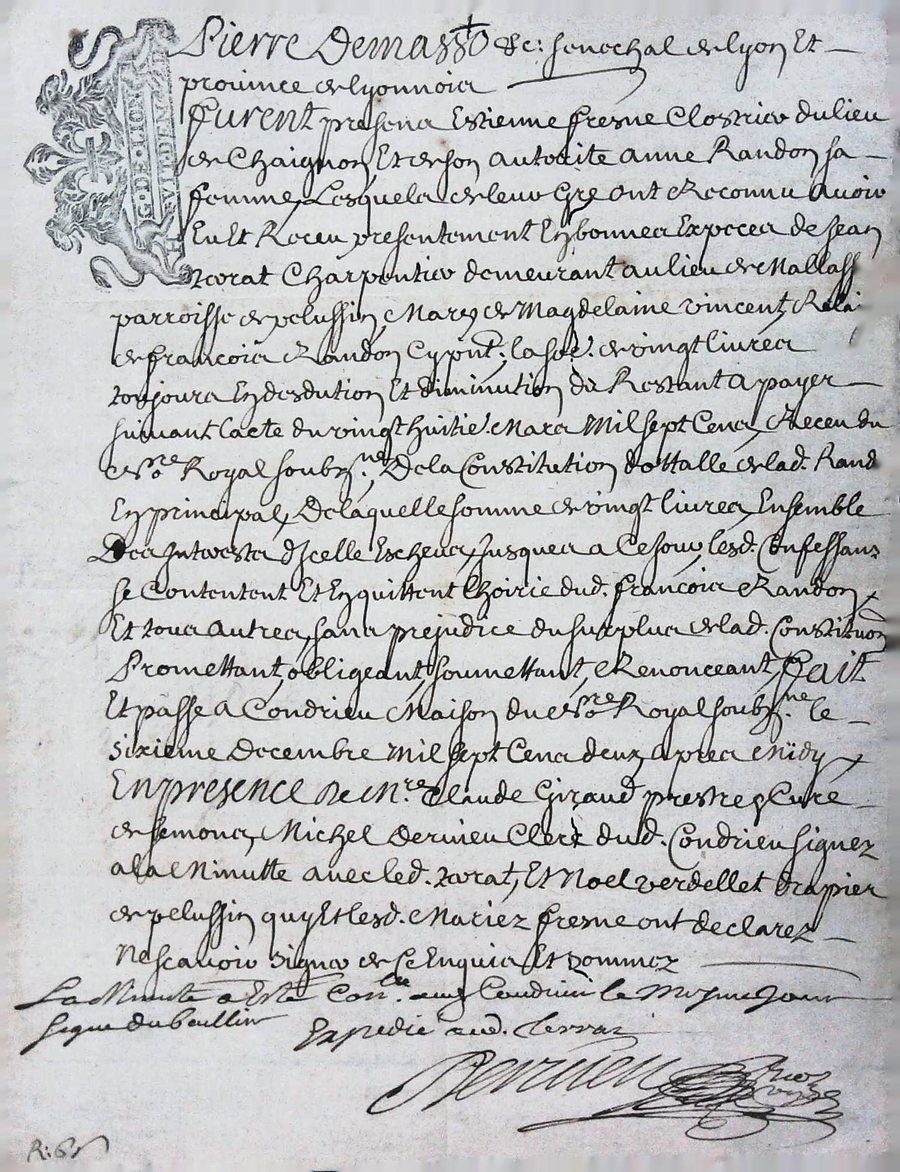 Pierre Demasso &c: senechal de lyon Et
province de lyonnois
furent presens Estienne fresne Clostrier du lieu
de Chaignon, Et de son autorite anne Randon sa
femme, Lesquels de leur Gre ont Reconnu avoir
Eu Et Receu presentement En bonnes Expeces de Jean
Charpentier demeurant au lieu de
G. DE. LION
parroisse de pelussin, Mary de Magdelaine vincent,
de francois Randon Cy pnt; la soe. de vingt livres
toujours En desdution Et diminution du Restant a payer
suivant l'acte du vingt huitie Mars Mil sept Cens, Receu du
no.re Royal soubz.ne, De la Constitution de Halle de lad. Rand
En principal, De laquelle somme de vingt livres, Ensemble
Des Interests d'Icelle Escheus, Jusques a Ce jour, lesd. Confessans
se Contentent Et En quittent l'hoirie dud. francois Randon
Et tous autres, sans prejudice du surplus de lad. Constituon
Promettant, obligeant, soumettant, Renonceant, fait
Et passe a Condrieu Maison du no.re Royal soubz.ne le
sixieme Decembre Mil sept Cens deux apres Midy
En presence de M.re Claude Giraud prestre & Cure
de semons, Michel dervieu Clerc dud. Condrieu signez
a la Minutte avec led. , Et Noel verdellet drapier
de pelussin quy Et lesd. Mariez fresne ont declarez
Ne scavoir signer de Ce Enquis Et sommez
La Minutte a Este Con.lee aud Condrieu le Mesme Jour
signe dubeullin Expedie aud.
Dervieu
R: 6s